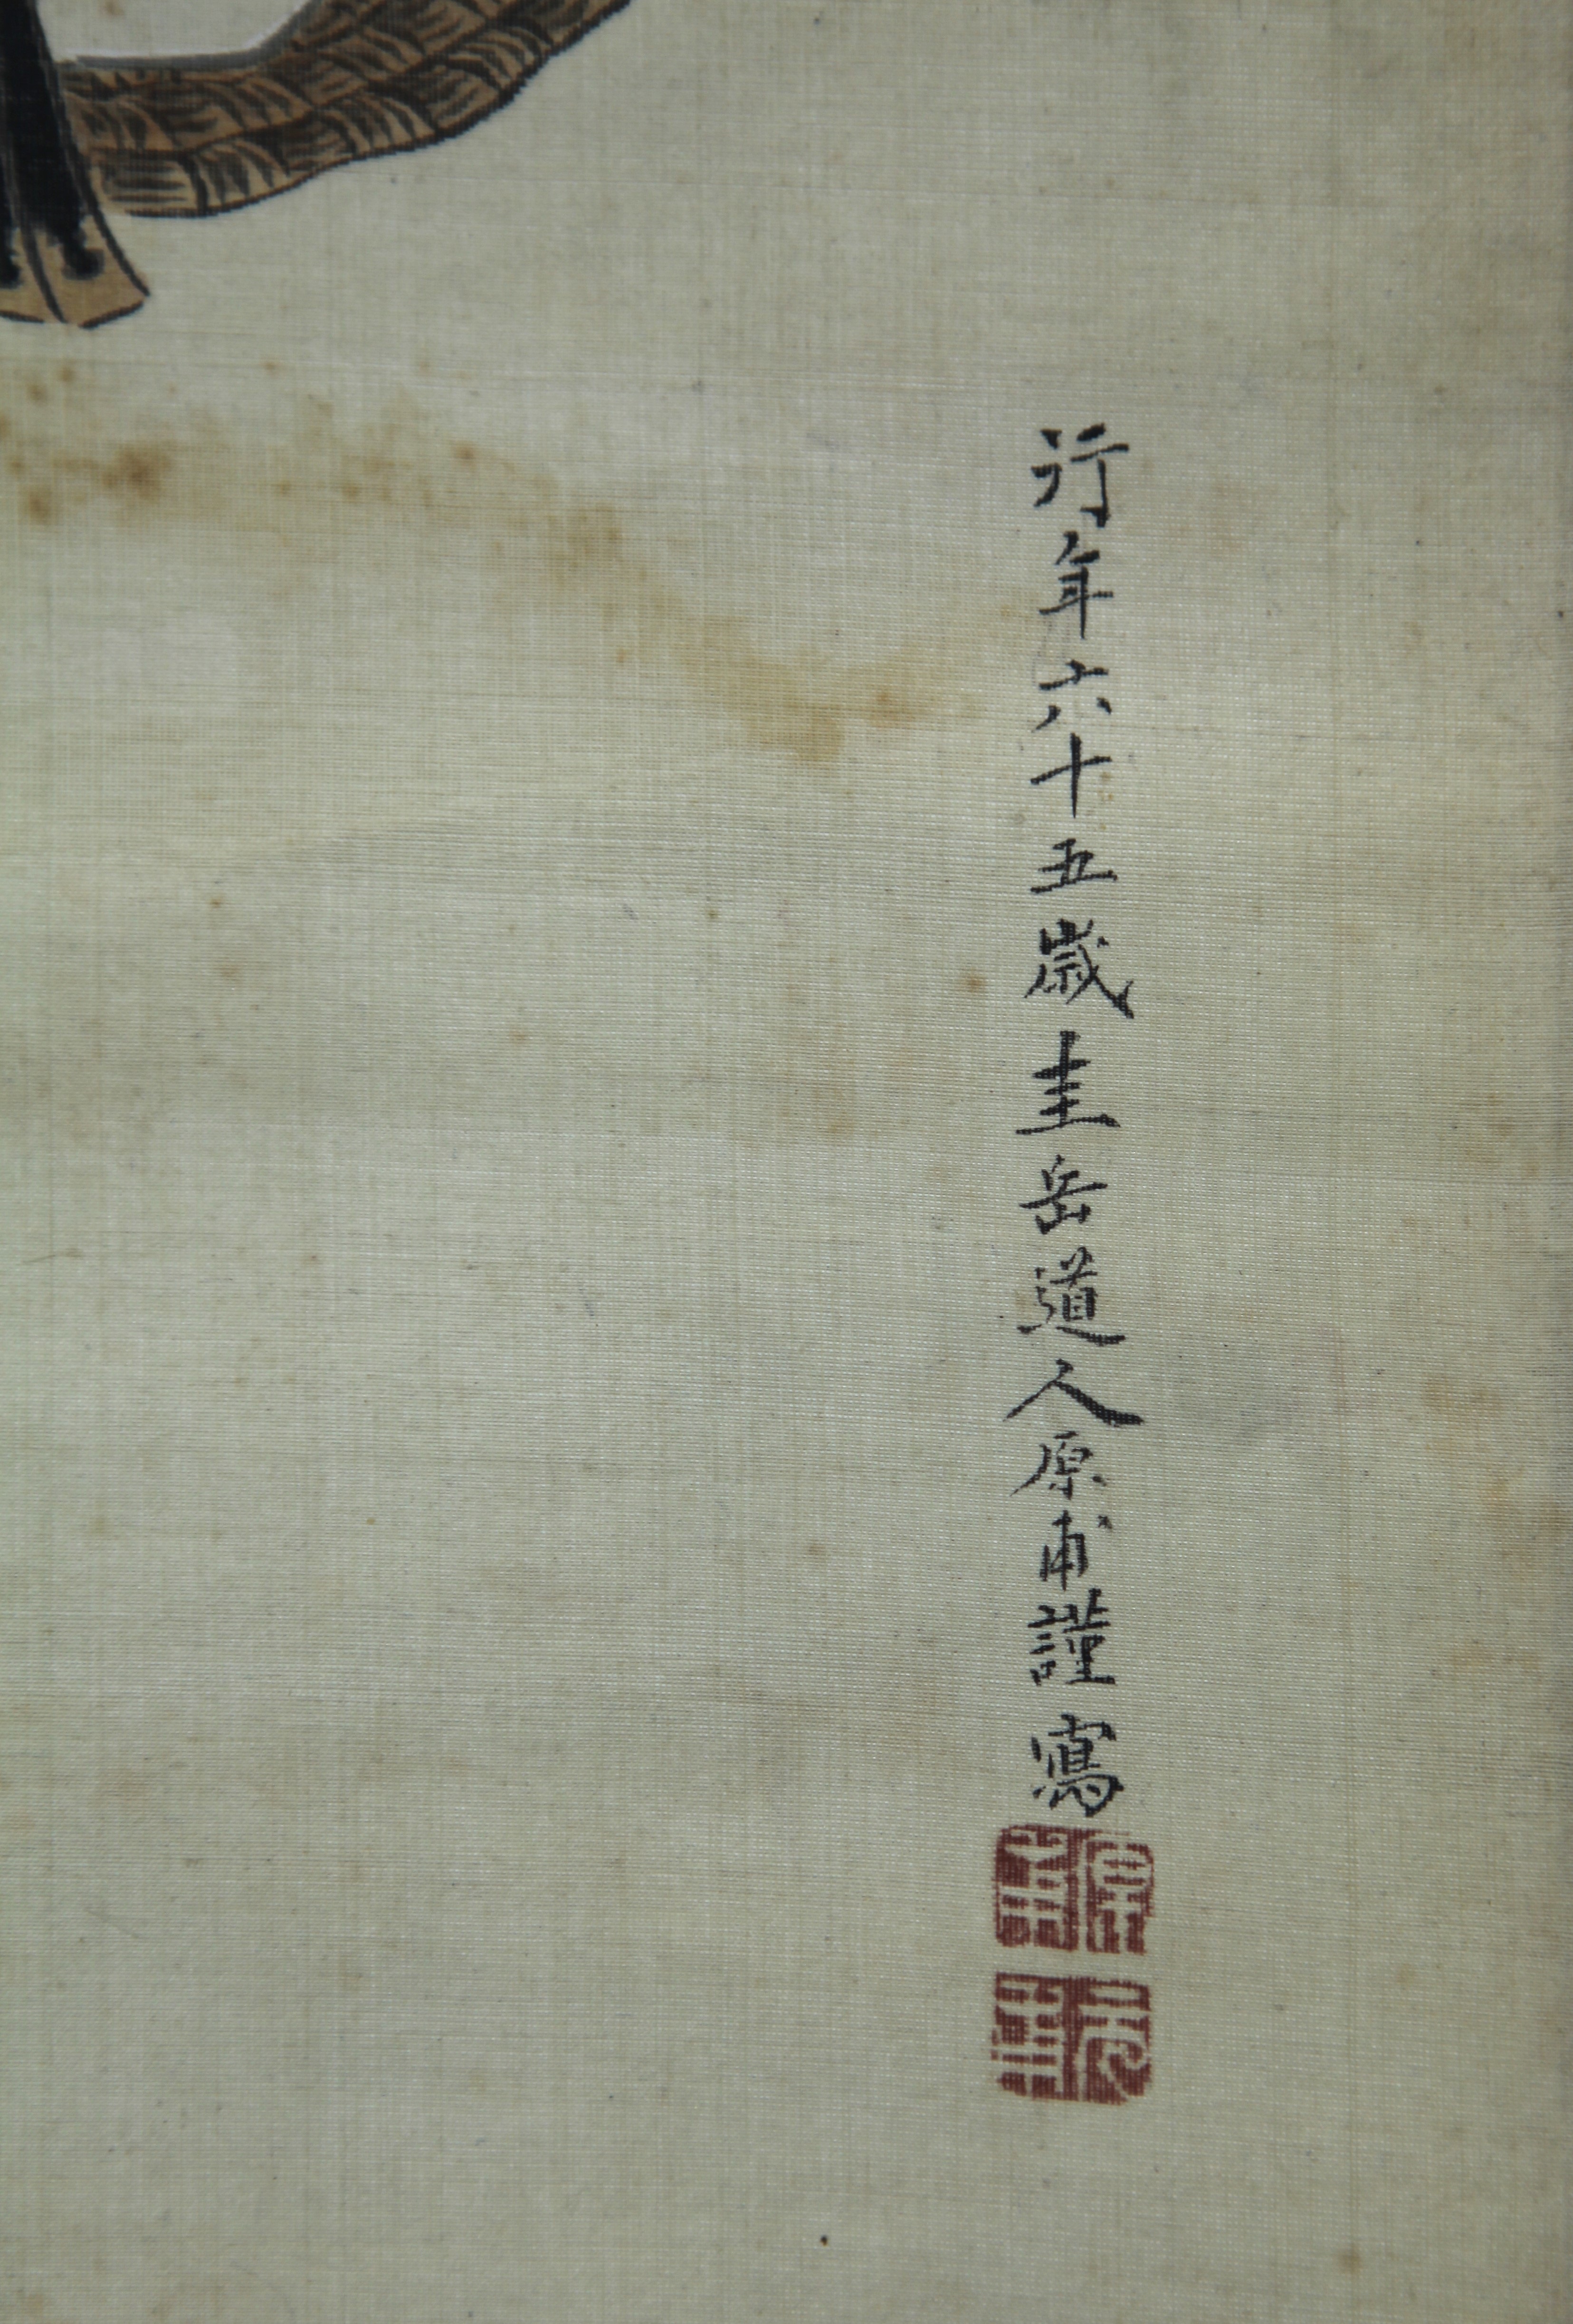 行年六十五歳圭岳道人原甫謹寫